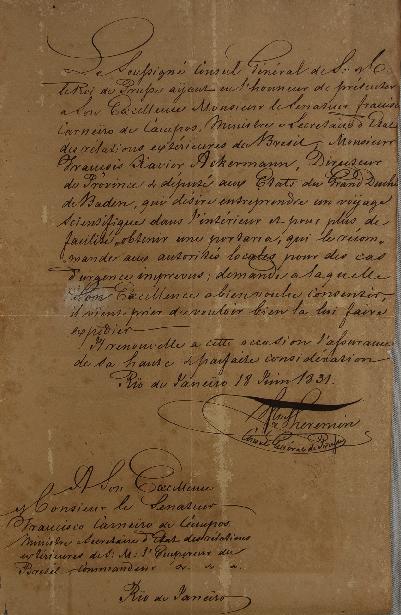 Le Soussigné Consul Général de S. M.
le Roi de Prusse ayant eu l'honneur de présenter
a Son Excellence Monsieur le Senateur Francisco
Carneiro de Campos, Ministre e Secretaire d'Etat
des relations exterieures du Bresil, Monsieur
François Xavier Ackermann, Directeur
de Province & député aux Etats du Grand Duché
de Baden, qui désire entreprendre un voyage
scientifique dans l'intérieur et pour plus de
facilité, obtenir une portaria, qui le récom-
mande aux autorités locales pour des cas
d'urgence imprevus; demande a laquelle
Son Excellence a bien voulu consentir,
il vient prier de vouloir bien la lui faire
expédier.
Il renouvelle a cette occasion l'assurance
de sa haute & parfaite consideration
Rio de Janeiro 18 Juin 1831.
Theremin
Consul Général de Prusse
A Son Excellence
Monsieur le Senateur
Francisco Carneiro de Campos
Ministre Secretaire d'Etat des relations
exterieures de S. M. l'Empereur du
Brésil Commandeur &. &. &.
Rio de Janeiro